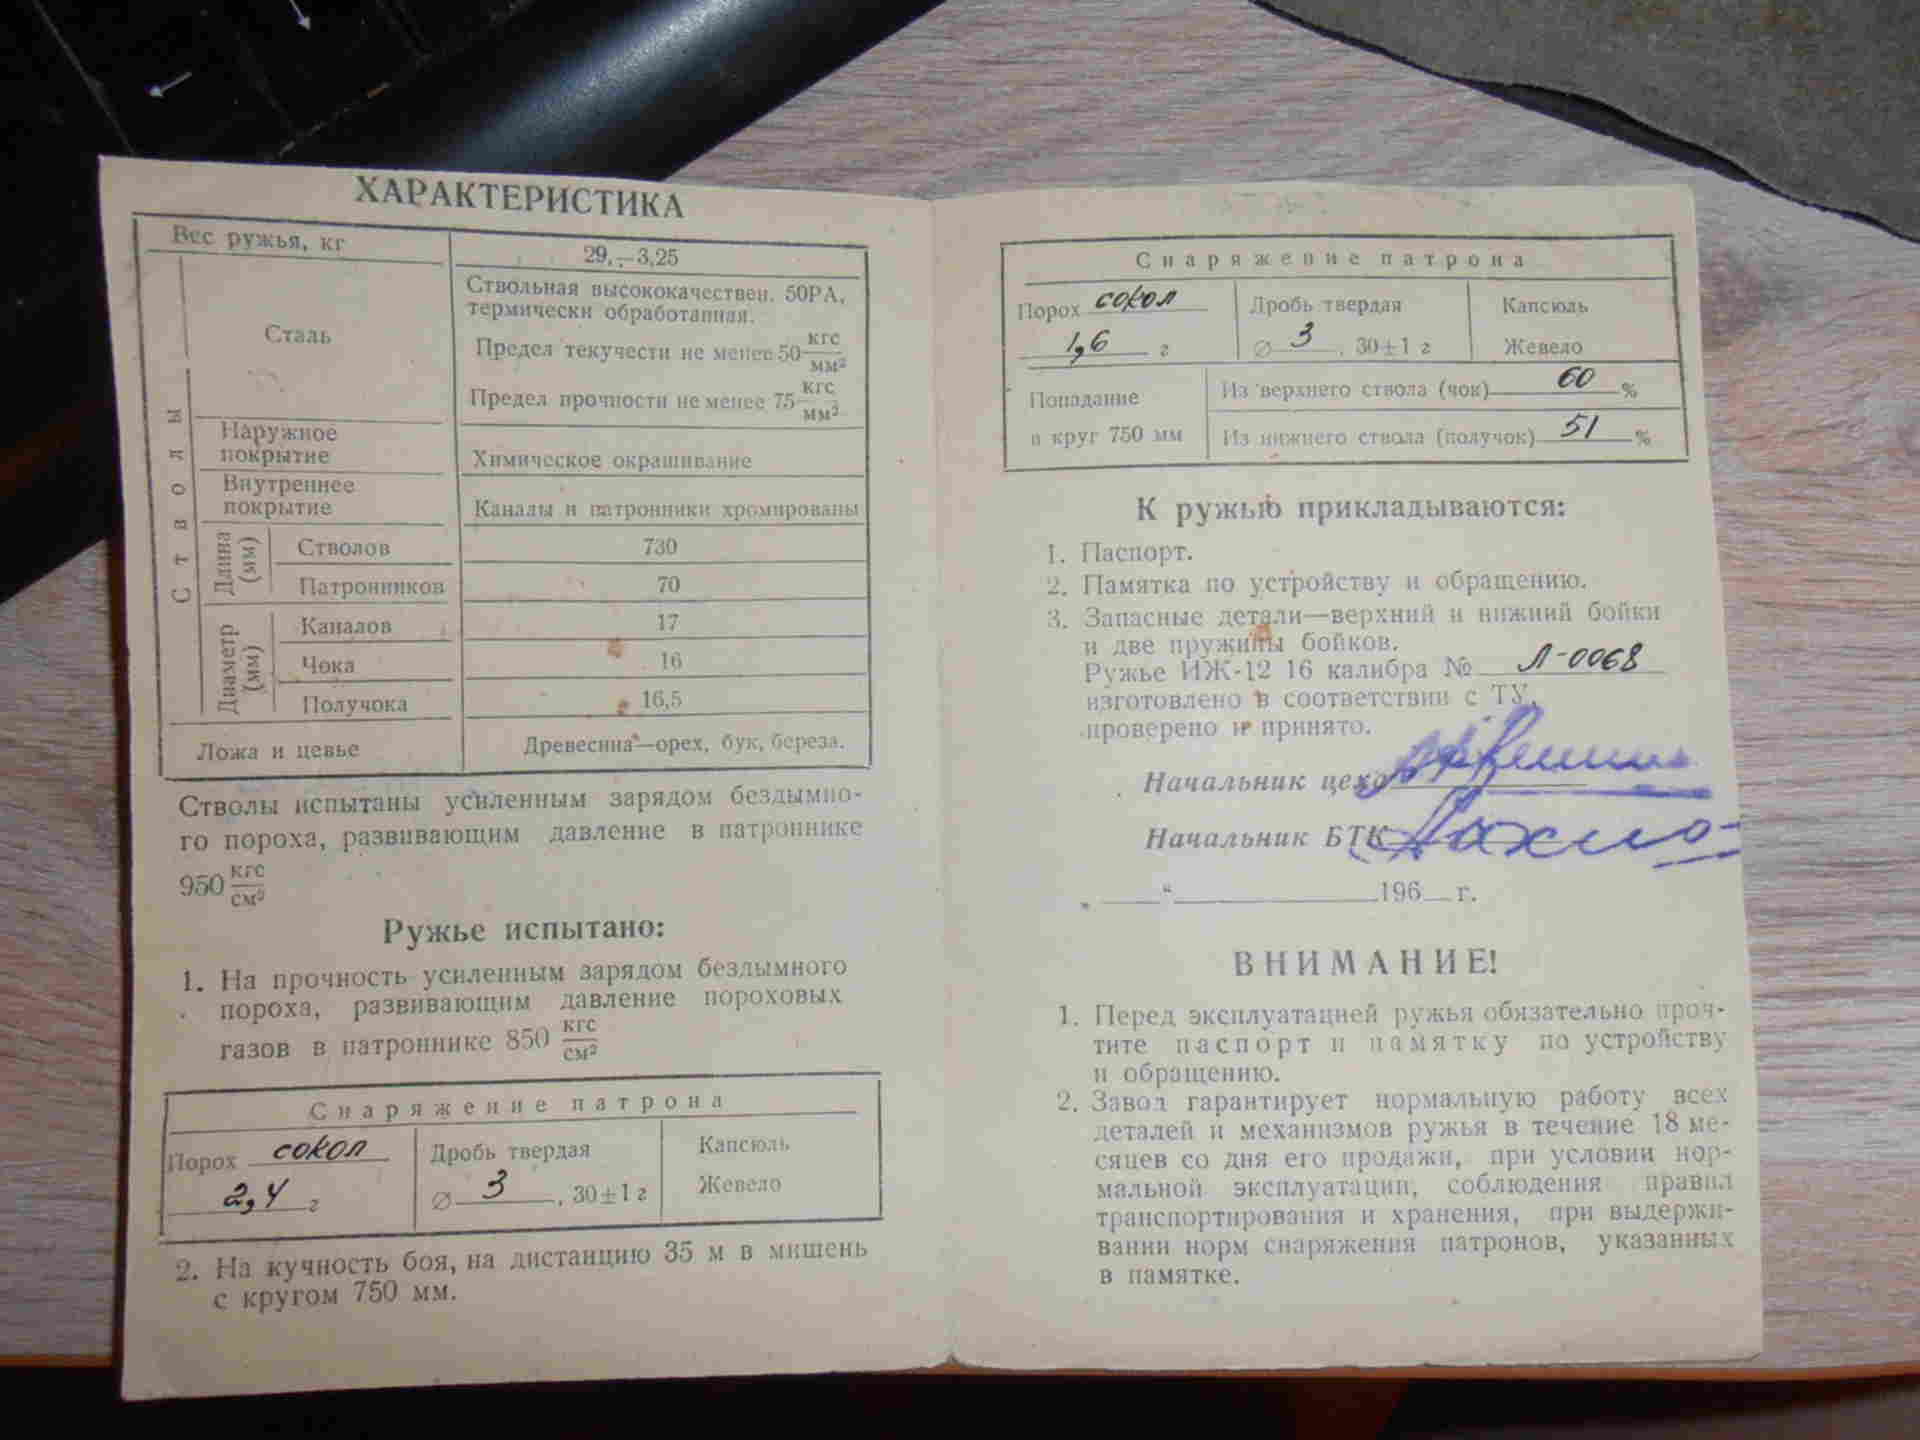 ХАРАКТЕРИСТИКА
Вес ружья, кг 29,—3,25
Стволы
Сталь
Ствольная высококачествен. 50РА,
термически обработанная.
Предел текучести не менее 50 кгс/мм²
Предел прочности не менее 75 кгс/мм²
Наружное покрытие Химическое окрашивание
Внутреннее покрытие Каналы и патронники хромированы
Длина (мм)
Стволов 730
Патронников 70
Диаметр (мм)
Каналов 17
Чока 16
Получока 16,5
Ложа и цевье Древесина—орех, бук, береза.
Стволы испытаны усиленным зарядом бездымно-
го пороха, развивающим давление в патроннике
950 кгс/см²
Ружье испытано:
1. На прочность усиленным зарядом бездымного
пороха, развивающим давление пороховых
газов в патроннике 850 кгс/см²
Снаряжение патрона
Порох сокол Дробь твердая Капсюль
2,4 г ∅ 3, 30±1 г Жевело
2. На кучность боя, на дистанцию 35 м в мишень
с кругом 750 мм.
Снаряжение патрона
Порох сокол Дробь твердая Капсюль
1,6 г ∅ 3, 30±1 г Жевело
Попадание
в круг 750 мм
Из верхнего ствола (чок) 60 %
Из нижнего ствола (получок) 51 %
К ружью прикладываются:
1. Паспорт.
2. Памятка по устройству и обращению.
3. Запасные детали—верхний и нижний бойки
и две пружины бойков.
Ружье ИЖ-12 16 калибра № Л-0068
изготовлено в соответствии с ТУ,
проверено и принято.
Начальник цеха
Начальник БТК
„ “ 196 г.
ВНИМАНИЕ!
1. Перед эксплуатацией ружья обязательно проч-
тите паспорт и памятку по устройству
и обращению.
2. Завод гарантирует нормальную работу всех
деталей и механизмов ружья в течение 18 ме-
сяцев со дня его продажи, при условии нор-
мальной эксплуатации, соблюдения правил
транспортирования и хранения, при выдержи-
вании норм снаряжения патронов, указанных
в памятке.